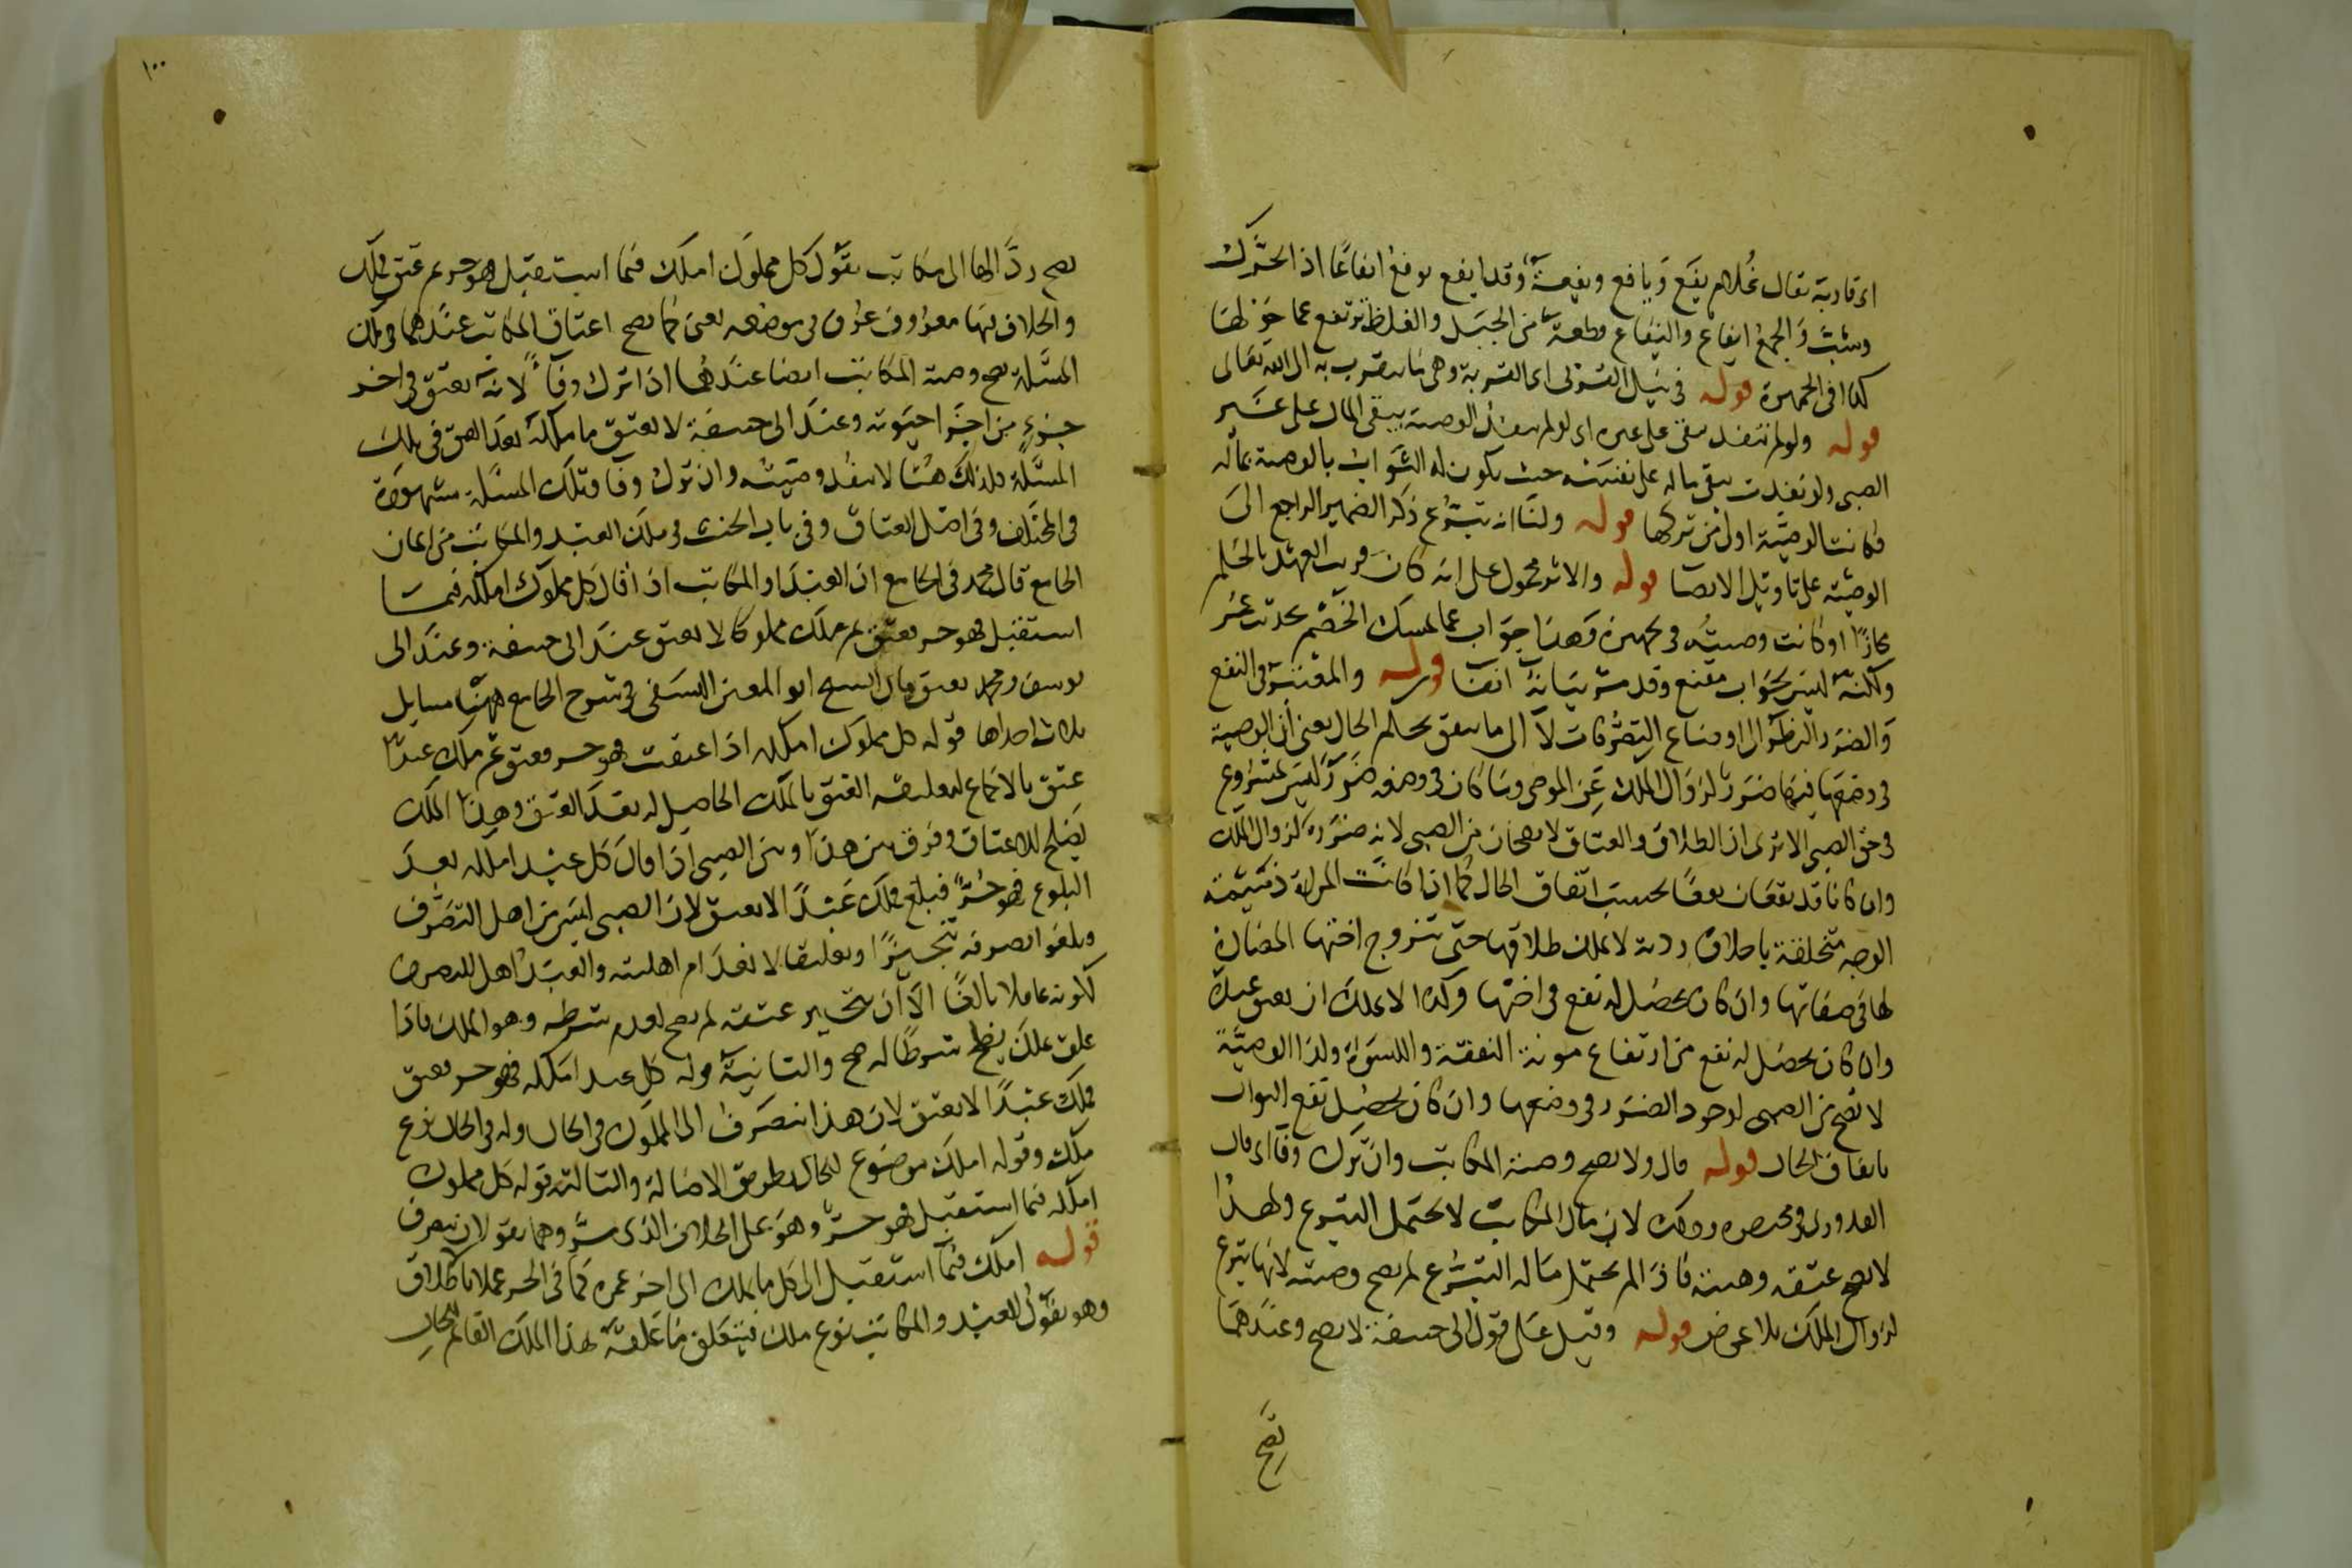 اى قاربة يقال غلام يفع ويافع ويفعة وقد ايفع يوفع ايفاعًا اذا تحرك
وشبّ والجمع ايفاع واليفاع قطعة من الجبل والغلظ ترتفع عما حولها
كذا فى الجمهرة قوله فى نيل القربى اى القربة وهى ما يتقرب به الى الله تعالى
قوله ولو لم تنفذ يبقى على غيره اى لو لم ينفذ الوصية يبقى المال على غير
الصبى ولو نفذت يبقى ماله على نفسه حيث يكون له الثواب بالوصية بماله
فكانت الوصية اولى من تركها قوله ولنا انه تبرع ذكر الضمير الراجع الى
الوصية على تاويل الايصا قوله والاثر محمول على انه كان قريب العهد بالحلم
مجازًا او كانت وصيته فى تجهيزه وهذا جواب عما تمسك الخصم بحديث عمر
ولكنه ليس بجواب مقنع وقد مر بيانه انفا قوله والمعتبر فى النفع
والضرر النظر الى اوضاع التصرفات لا الى ما يتفق بحكم الحال يعنى ان الوصية
فى وضعها فيها ضرر لزوال الملك عن الموصى وما كان فى وضعه ضرر ليس بمشروع
فى حق الصبى الا ترى ان الطلاق والعتاق لا يصحان من الصبى لانه ضرر لزوال الملك
وان كانا قد يقعان نفعًا بحسب اتفاق الحال كما اذا كانت المراة ذميمة
الوجه متخلقة باخلاق ردية لا يملك طلاقها حتى يتزوج اختها المضادة
لها فى صفاتها وان كان يحصل له نفع فى اختها وكذا لا يملك ان يعتق عبده
وان كان يحصل له نفع من ارتفاع مونة النفقة والكسوة ولذا الوصية
لا تصح من الصبى لوجود الضرر فى وضعها وان كان يحصل نفع الثواب
باتفاق الحال قوله قال ولا يصح وصية المكاتب وان ترك وفا اى قال
القدورى فى مختصره وذلك لان مال المكاتب لا يحتمل التبرع ولهذا
لا يصح عتقه وهبته فاذا لم يحتمل ماله التبرع لم يصح وصيته لانها تبرع
لزوال الملك بلا عوض قوله وقيل على قول ابى حنيفة لا يصح وعندهما
تصح
١٠٠
يصح ردًّا لها الى مكاتب يقول كل مملوك املك فيما استقبل فهو حر ثم عتق فملك
والخلاف فيها معروف عرف فى موضعه يعنى كما يصح اعتاق المكاتب عندهما فى تلك
المسئلة تصح وصية المكاتب ايضا عندهما اذا ترك وفآءً لانه يعتق فى اخر
جزء من اجزا حيوته وعند ابى حنيفة لا يعتق ما ملكه بعد العتق فى تلك
المسئلة فلذلك هنا لا ينفذ وصيته وان ترك وفا وتلك المسئلة مشهورة
فى المختلف وفى اصل العتاق وفى باب الحنث فى ملك العبد والمكاتب من ايمان
الجامع قال محمد فى الجامع ان العبد او المكاتب اذا قال كل مملوك املكه فيما
استقبل فهو حر يعتق ثم ملك مملوكا لا يعتق عند ابى حنيفة وعند ابى
يوسف ومحمد يعتق قال الشيخ ابو المعين النسفى فى شرح الجامع ههنا مسايل
ثلاث احداها قوله كل مملوك املكه اذا عتقت فهو حر فعتق ثم ملك عبدًا
عتق بالاجماع لتعليقه العتق بالملك الحاصل له بعد العتق وهذا الملك
يصلح للاعتاق وفرق بين هذا وبين الصبى اذا قال كل عبد املكه بعد
البلوغ فهو حر فبلغ فملك عبدًا لا يعتق لان الصبى ليس من اهل التصرف
ويلغوا تصرفه تنجيزًا وتعليقا لانعدام اهليته والعبد اهل للتصرف
لكونه عاقلا بالغًا الا ان تنجيز عتقه لم يصح لعدم شرطه وهو الملك فاذا
علق بملك يصلح شرطًا له صح والثانية قوله كل عبد املكه فهو حر فعتق
فملك عبدًا لا يعتق لان هذا انصرف الى المملوك فى الحال وله فى الحال نوع
ملك وقوله املك موضوع للحال بطريق الاصالة والثالثة قوله كل مملوك
املكه فيما استقبل فهو حر وهو على الخلاف الذى مر وهما يقولان ينصرف
قوله املك فيما استقبل الى كل ما يملك الى اخر عمره كما فى الحر عملا باطلاق
وهو يقول للعبد والمكاتب نوع ملك فيتعلق ما علقه بهذا الملك القائم للحال